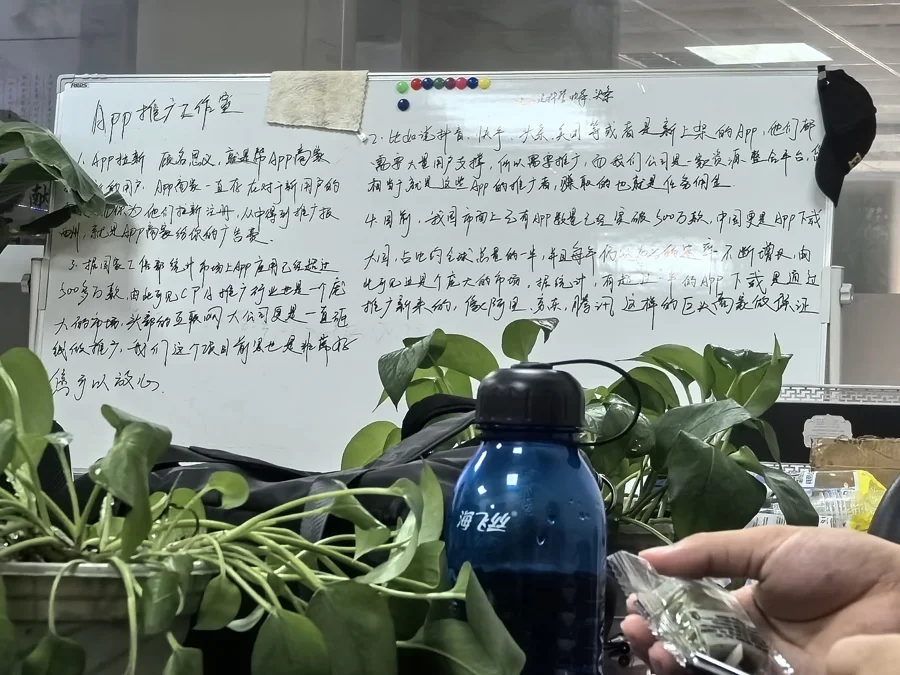 App推广工作室
1. App拉新 顾名思义，就是帮App商家
用户，App商家一直在应对于新用户的
为他们拉新注册，从中得到推广报
酬，就是App商家给你的广告费
3. 据国家工信部统计市场上App应用已经超过
500多万款，由此可见CPA推广行业也是一个庞
大的市场，头部的互联网大公司更是一直砸
钱做推广，我们这个项目前景也是非常好
您可以放心
头条
2. 比如说抖音、快手、头条、美团等或者是新上架的App，他们都
需要大量用户支撑，所以需要推广，而我们公司是一家资源整合平台，
相当于就是这些App的推广者，赚取的也就是任务佣金
4. 目前，我国市面上已有App数量已经突破500万款，中国更是App下载
大国，占比约全球总量的一半，并且每年 不断增长，由
此可见这是个庞大的市场，据统计，有超过一半的App下载是通过
推广新来的，像阿里、京东、腾讯这样的巨头商家做保证
献